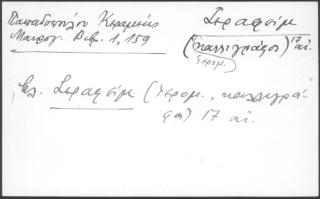 Παπαδοπούλου Κεραμέως
Μαυρογ. Βιβ. 1, 159
Σεραφείμ
(καλλιγράφος) 17 αι.
ιερομ.
βλ. Σεραφείμ (ιερομ., καλλιγρά-
φος) 17 αι.